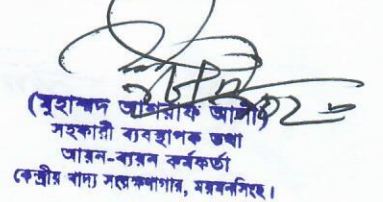 (মুহাম্মদ আশরাফ আলী)
সহকারী ব্যবস্থাপক তথা
আয়ন-ব্যয়ন কর্মকর্তা
কেন্দ্রীয় খাদ্য সংরক্ষণাগার, ময়মনসিংহ।